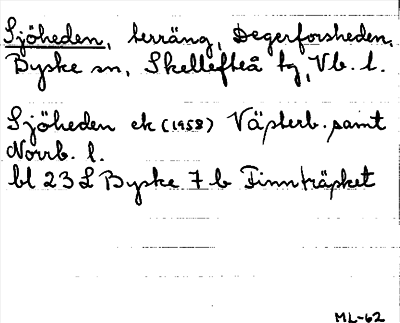 Sjöheden, terräng, Degerforsheden,
Byske sn, Skellefteå tg, Vb. l.
Sjöheden ek (1958) Västerb. samt
Norrb. l.
bl 23 L Byske 7 b Finnträsket
ML-62